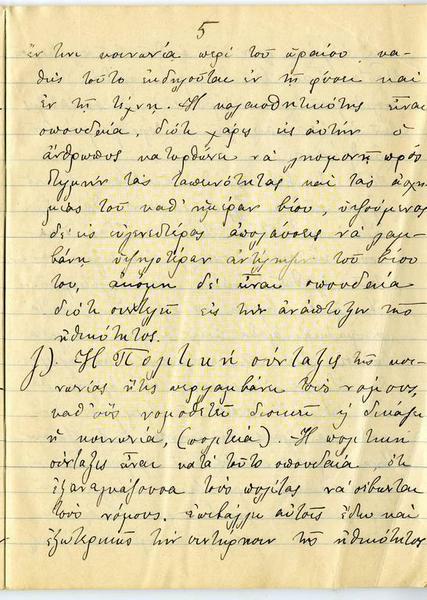 5
ἐν τῇ κοινωνίᾳ περὶ τοῦ ὡραίου, κα-
θὼς τοῦτο ἐκδηλοῦται ἐν τῇ φύσει καὶ
ἐν τῇ τέχνῃ. Ἡ καλαισθητικότης εἶναι
σπουδαία, διότι χάρις εἰς αὐτὴν ὁ
ἄνθρωπος κατορθώνει νὰ λησμονῇ πρὸς
στιγμὴν τὰς ταπεινότητας καὶ τὰς ἀσχη-
μίας τοῦ καθ' ἡμέραν βίου, ὑψούμενος
δὲ εἰς εὐγενεστέρας ἀπολαύσεις νὰ λαμ-
βάνῃ ὑψηλοτέραν ἀντίληψιν τοῦ βίου
του, ἀκόμη δὲ εἶναι σπουδαία
διότι συντελεῖ εἰς τὴν ἀνάπτυξιν τῆς
ἠθικότητος.
Ἡ Πολιτικὴ σύνταξις τῆς κοι-
νωνίας ἥτις περιλαμβάνει τοὺς νόμους,
καθ' οὓς νομοθετεῖ διοικεῖ ἢ δικάζει
ἡ κοινωνία, (πολιτεία). Ἡ πολιτικὴ
σύνταξις εἶναι κατὰ τοῦτο σπουδαία, ὅτι
ἐξαναγκάζουσα τοὺς πολίτας νὰ σέβωνται
τοὺς νόμους, ἐπιβάλλει αὐτοῖς ἔστω καὶ
ἐξωτερικῶς τὴν συντήρησιν τῆς ἠθικότητος